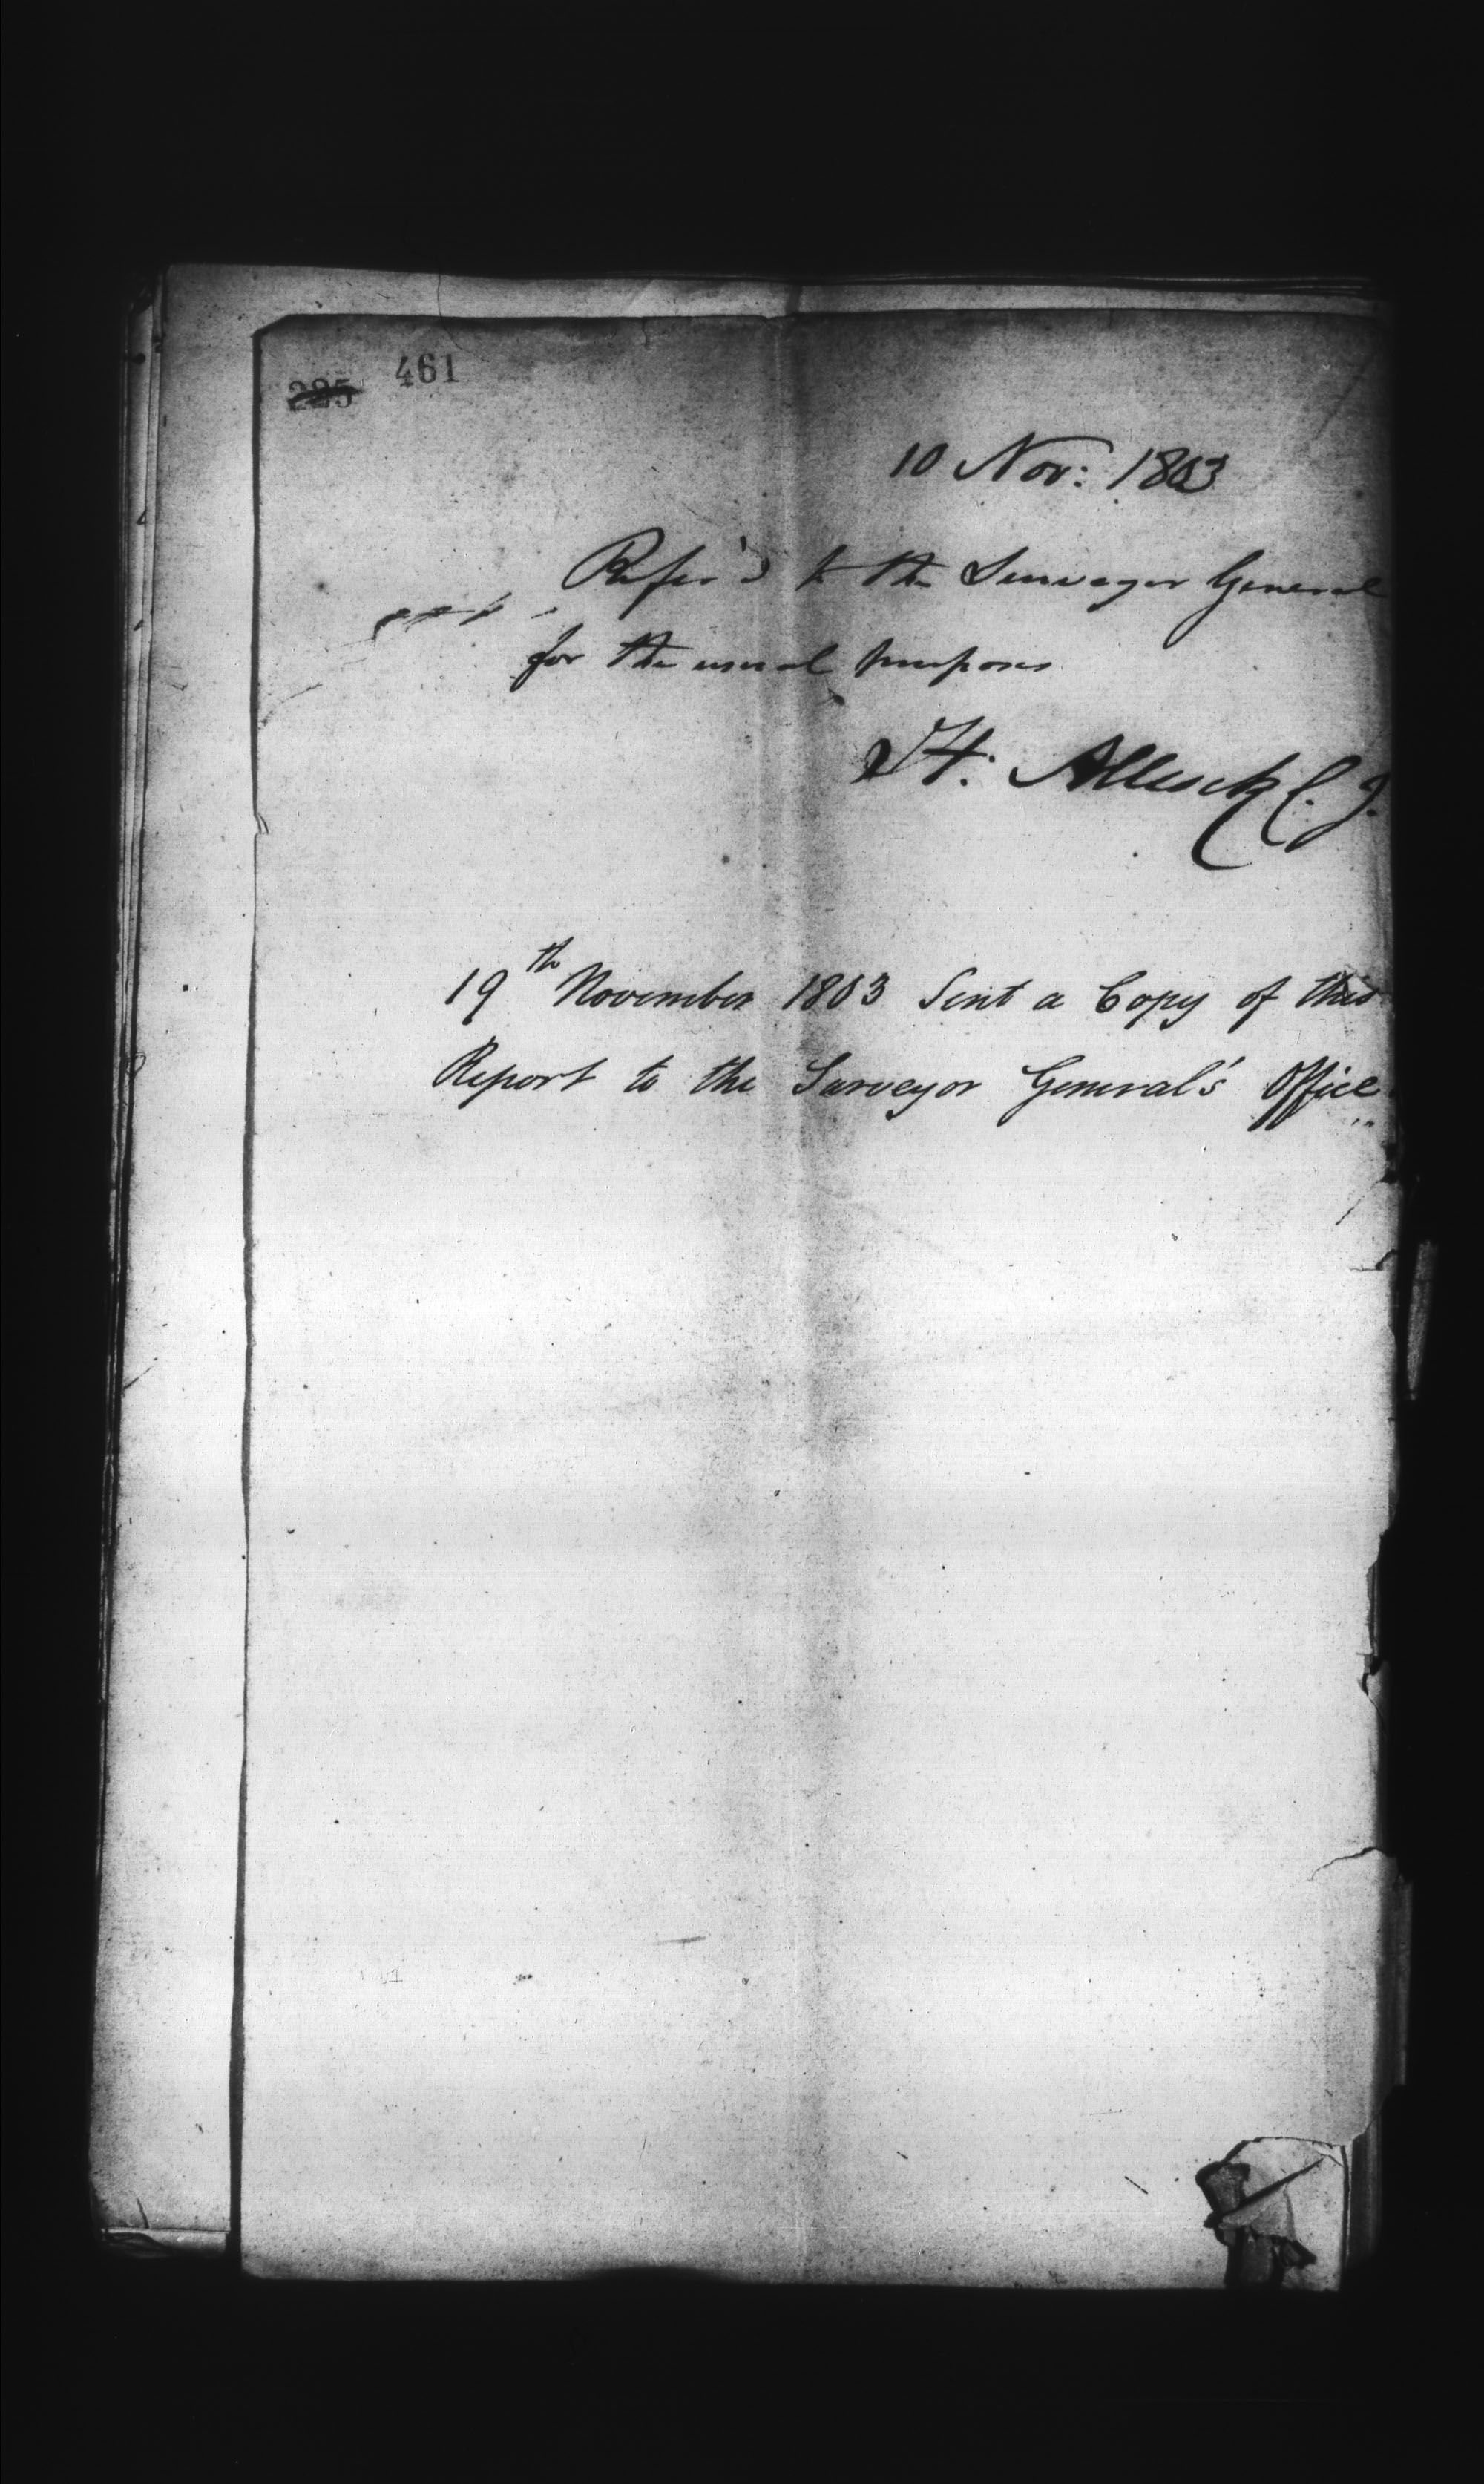 225 461
10 Nov: 1803
Refer'd to the Surveyor General
for the usual purposes
H: Allcock C. J.
19th November 1803 Sent a Copy of this
Report to the Surveyor General's Office